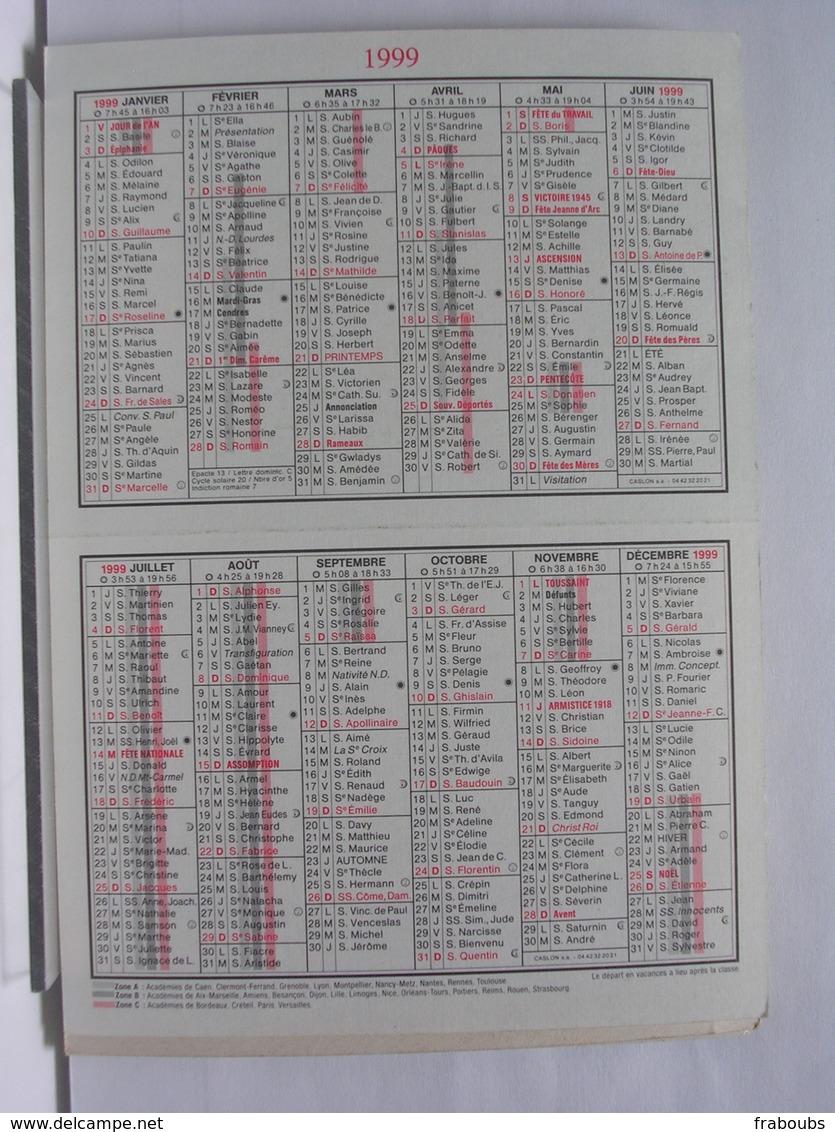 1999
1999 JANVIER
7 h 45 à 16 h 03
1 V JOUR de l'AN
2 S S. Basile
3 D Épiphanie
4 L S. Odilon
5 M S. Édouard
6 M S. Mélaine
7 J S. Raymond
8 V S. Lucien
9 S Se Alix
10 D S. Guillaume
11 L S. Paulin
12 M Se Tatiana
13 M Se Yvette
14 J Se Nina
15 V S. Remi
16 S S. Marcel
17 D Se Roseline
18 L Se Prisca
19 M S. Marius
20 M S. Sébastien
21 J Se Agnès
22 V S. Vincent
23 S S. Barnard
24 D S. Fr. de Sales
25 L Conv. S. Paul
26 M Se Paule
27 M Se Angèle
28 J S. Th. d'Aquin
29 V S. Gildas
30 S Se Martine
31 D Se Marcelle
FÉVRIER
7 h 23 à 16 h 46
1 L Se Ella
2 M Présentation
3 M S. Blaise
4 J Se Véronique
5 V Se Agathe
6 S S. Gaston
7 D Se Eugénie
8 L Se Jacqueline
9 M Se Apolline
10 M S. Arnaud
11 J N.-D. Lourdes
12 V S. Félix
13 S Se Béatrice
14 D S. Valentin
15 L S. Claude
16 M Mardi-Gras
17 M Cendres
18 J Se Bernadette
19 V S. Gabin
20 S Se Aimée
21 D 1er Dim. Carême
22 L Se Isabelle
23 M S. Lazare
24 M S. Modeste
25 J S. Roméo
26 V S. Nestor
27 S Se Honorine
28 D S. Romain
Epacte 13 / Lettre dominic. C
Cycle solaire 20 / Nbre d'or 5
Indiction romaine 7
MARS
6 h 35 à 17 h 32
1 L S. Aubin
2 M S. Charles le B.
3 M S. Guénolé
4 J S. Casimir
5 V S. Olive
6 S Se Colette
7 D Se Félicité
8 L S. Jean de D.
9 M Se Françoise
10 M S. Vivien
11 J Se Rosine
12 V Se Justine
13 S S. Rodrigue
14 D Se Mathilde
15 L Se Louise
16 M Se Bénédicte
17 M S. Patrice
18 J S. Cyrille
19 V S. Joseph
20 S S. Herbert
21 D PRINTEMPS
22 L Se Léa
23 M S. Victorien
24 M Se Cath. Su.
25 J Annonciation
26 V Se Larissa
27 S S. Habib
28 D Rameaux
29 L Se Gwladys
30 M S. Amédée
31 M S. Benjamin
AVRIL
5 h 31 à 18 h 19
1 J S. Hugues
2 V Se Sandrine
3 S S. Richard
4 D PÂQUES
5 L Se Irène
6 M S. Marcellin
7 M S. J.-Bapt. d. l. S.
8 J Se Julie
9 V S. Gautier
10 S S. Fulbert
11 D S. Stanislas
12 L S. Jules
13 M Se Ida
14 M S. Maxime
15 J S. Paterne
16 V S. Benoît-J.
17 S S. Anicet
18 D S. Parfait
19 L Se Emma
20 M Se Odette
21 M S. Anselme
22 J S. Alexandre
23 V S. Georges
24 S S. Fidèle
25 D Souv. Déportés
26 L Se Alida
27 M Se Zita
28 M Se Valérie
29 J Se Cath. de Si.
30 V S. Robert
MAI
4 h 33 à 19 h 04
1 S FÊTE du TRAVAIL
2 D S. Boris
3 L SS. Phil., Jacq.
4 M S. Sylvain
5 M Se Judith
6 J Se Prudence
7 V Se Gisèle
8 S VICTOIRE 1945
9 D Fête Jeanne d'Arc
10 L Se Solange
11 M Se Estelle
12 M S. Achille
13 J ASCENSION
14 V S. Matthias
15 S Se Denise
16 D S. Honoré
17 L S. Pascal
18 M S. Éric
19 M S. Yves
20 J S. Bernardin
21 V S. Constantin
22 S S. Émile
23 D PENTECÔTE
24 L S. Donatien
25 M Se Sophie
26 M S. Bérenger
27 J S. Augustin
28 V S. Germain
29 S S. Aymard
30 D Fête des Mères
31 L Visitation
JUIN 1999
3 h 54 à 19 h 43
1 M S. Justin
2 M Se Blandine
3 J S. Kévin
4 V Se Clotilde
5 S S. Igor
6 D Fête-Dieu
7 L S. Gilbert
8 M S. Médard
9 M Se Diane
10 J S. Landry
11 V S. Barnabé
12 S S. Guy
13 D S. Antoine de P.
14 L S. Élisée
15 M Se Germaine
16 M S. J.-F. Régis
17 J S. Hervé
18 V S. Léonce
19 S S. Romuald
20 D Fête des Pères
21 L ÉTÉ
22 M S. Alban
23 M Se Audrey
24 J S. Jean Bapt.
25 V S. Prosper
26 S S. Anthelme
27 D S. Fernand
28 L S. Irénée
29 M SS. Pierre, Paul
30 M S. Martial
CASLON s.a. - 04 42 32 20 21
1999 JUILLET
3 h 53 à 19 h 56
1 J S. Thierry
2 V S. Martinien
3 S S. Thomas
4 D S. Florent
5 L S. Antoine
6 M Se Mariette
7 M S. Raoul
8 J S. Thibaut
9 V Se Amandine
10 S S. Ulrich
11 D S. Benoît
12 L S. Olivier
13 M SS. Henri, Joël
14 M FÊTE NATIONALE
15 J S. Donald
16 V N.D. Mt-Carmel
17 S Se Charlotte
18 D S. Frédéric
19 L S. Arsène
20 M Se Marina
21 M S. Victor
22 J Se Marie-Mad.
23 V Se Brigitte
24 S Se Christine
25 D S. Jacques
26 L SS. Anne, Joach.
27 M Se Nathalie
28 M S. Samson
29 J Se Marthe
30 V Se Juliette
31 S S. Ignace de L.
AOÛT
4 h 25 à 19 h 28
1 D S. Alphonse
2 L S. Julien Ey.
3 M Se Lydie
4 M S. J.M. Vianney
5 J S. Abel
6 V Transfiguration
7 S S. Gaétan
8 D S. Dominique
9 L S. Amour
10 M S. Laurent
11 M Se Claire
12 J Se Clarisse
13 V S. Hippolyte
14 S S. Évrard
15 D ASSOMPTION
16 L S. Armel
17 M S. Hyacinthe
18 M Se Hélène
19 J S. Jean Eudes
20 V S. Bernard
21 S S. Christophe
22 D S. Fabrice
23 L Se Rose de L.
24 M S. Barthélemy
25 M S. Louis
26 J Se Natacha
27 V Se Monique
28 S S. Augustin
29 D Se Sabine
30 L S. Fiacre
31 M S. Aristide
SEPTEMBRE
5 h 08 à 18 h 33
1 M S. Gilles
2 J Se Ingrid
3 V S. Grégoire
4 S Se Rosalie
5 D Se Raïssa
6 L S. Bertrand
7 M Se Reine
8 M Nativité N.D.
9 J S. Alain
10 V Se Inès
11 S S. Adelphe
12 D S. Apollinaire
13 L S. Aimé
14 M La Se Croix
15 M S. Roland
16 J Se Édith
17 V S. Renaud
18 S Se Nadège
19 D Se Émilie
20 L S. Davy
21 M S. Matthieu
22 M S. Maurice
23 J AUTOMNE
24 V Se Thècle
25 S S. Hermann
26 D SS. Côme, Dam.
27 L S. Vinc. de Paul
28 M S. Venceslas
29 M S. Michel
30 J S. Jérôme
OCTOBRE
5 h 51 à 17 h 29
1 V Se Th. de l'E.J.
2 S S. Léger
3 D S. Gérard
4 L S. Fr. d'Assise
5 M Se Fleur
6 M S. Bruno
7 J S. Serge
8 V Se Pélagie
9 S S. Denis
10 D S. Ghislain
11 L S. Firmin
12 M S. Wilfried
13 M S. Géraud
14 J S. Juste
15 V Se Th. d'Avila
16 S Se Edwige
17 D S. Baudouin
18 L S. Luc
19 M S. René
20 M Se Adeline
21 J Se Céline
22 V Se Élodie
23 S S. Jean de C.
24 D S. Florentin
25 L S. Crépin
26 M S. Dimitri
27 M Se Émeline
28 J SS. Sim., Jude
29 V S. Narcisse
30 S S. Bienvenu
31 D S. Quentin
NOVEMBRE
6 h 38 à 16 h 30
1 L TOUSSAINT
2 M Défunts
3 M S. Hubert
4 J S. Charles
5 V Se Sylvie
6 S Se Bertille
7 D Se Carine
8 L S. Geoffroy
9 M S. Théodore
10 M S. Léon
11 J ARMISTICE 1918
12 V S. Christian
13 S S. Brice
14 D S. Sidoine
15 L S. Albert
16 M Se Marguerite
17 M Se Élisabeth
18 J Se Aude
19 V S. Tanguy
20 S S. Edmond
21 D Christ Roi
22 L Se Cécile
23 M S. Clément
24 M Se Flora
25 J Se Catherine L.
26 V Se Delphine
27 S S. Séverin
28 D Avent
29 L S. Saturnin
30 M S. André
CASLON s.a. - 04 42 32 20 21
DÉCEMBRE 1999
7 h 24 à 15 h 55
1 M Se Florence
2 J Se Viviane
3 V S. Xavier
4 S Se Barbara
5 D S. Gérald
6 L S. Nicolas
7 M S. Ambroise
8 M Imm. Concept.
9 J S. P. Fourier
10 V S. Romaric
11 S S. Daniel
12 D Se Jeanne-F.C.
13 L Se Lucie
14 M Se Odile
15 M Se Ninon
16 J Se Alice
17 V S. Gaël
18 S S. Gatien
19 D S. Urbain
20 L S. Abraham
21 M S. Pierre C.
22 M HIVER
23 J S. Armand
24 V Se Adèle
25 S NOËL
26 D S. Étienne
27 L S. Jean
28 M SS. Innocents
29 M S. David
30 J S. Roger
31 V S. Sylvestre
Le départ en vacances a lieu après la classe.
Zone A : Académies de Caen, Clermont-Ferrand, Grenoble, Lyon, Montpellier, Nancy-Metz, Nantes, Rennes, Toulouse.
Zone B : Académies de Aix-Marseille, Amiens, Besançon, Dijon, Lille, Limoges, Nice, Orléans-Tours, Poitiers, Reims, Rouen, Strasbourg
Zone C : Académies de Bordeaux, Créteil, Paris, Versailles.
www.delcampe.net
fraboubs